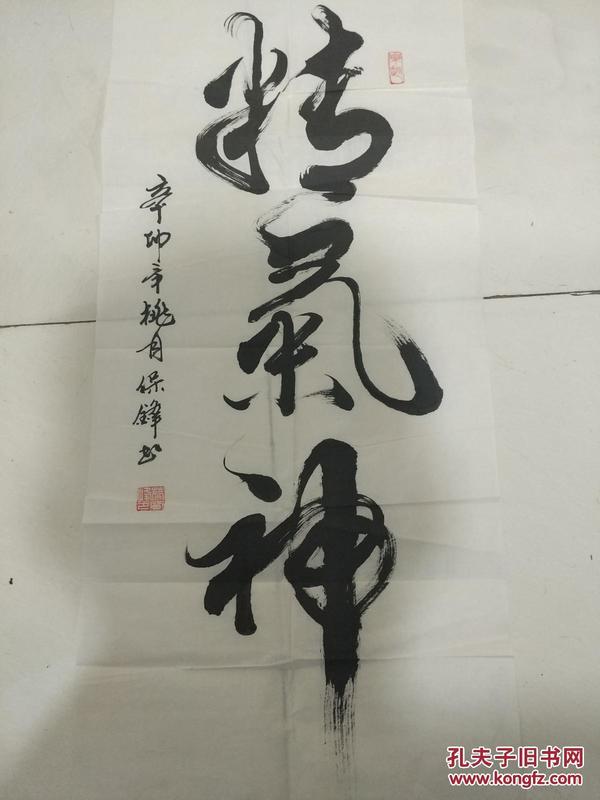 精氣神
辛卯年桃月保鋒书
孔夫子旧书网
www.kongfz.com